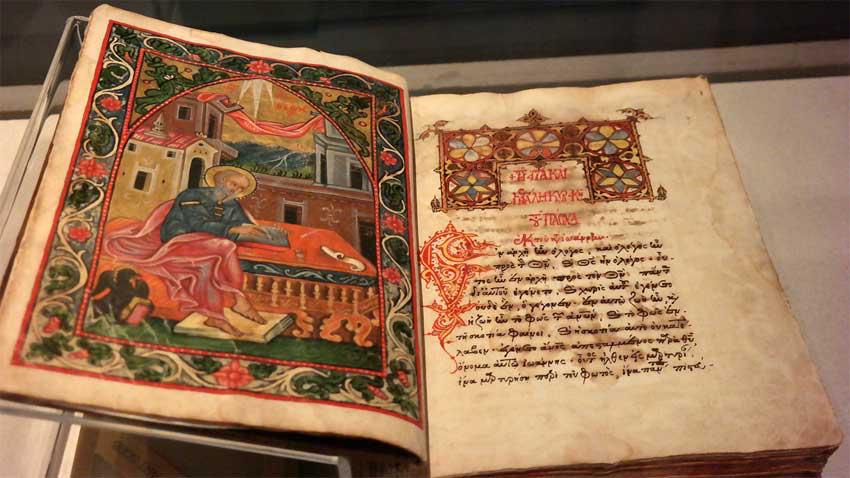 ΚΑΙ
ΠΑΣΧΑ
κατὰ Ἰωάννην.
ἐν ἀρχῇ ἦν ὁ λόγος, καὶ ὁ λόγος ἦν
πρὸς τὸν Θν, καὶ Θς ἦν ὁ λόγος. οὗ
τος ἦν ἐν ἀρχῇ πρὸς τὸν Θν. πάντ
δι' αὐτοῦ ἐγένετο. καὶ χωρὶς αὐτ ἐγένετο
οὐδὲ ἕν, ὃ γέγονεν. ἐν αὐτῷ ζωὴ ἦν, καὶ
ἡ ζωὴ ἦν τὸ φῶς τ ἀνων. καὶ τὸ φῶς ἐν
τῇ σκοτίᾳ φαίνει. καὶ ἡ σκοτία αὐτὸ οὐ κατέ
λαβεν. ἐγένετο ἄνος ἀπεσταλμένος παρὰ Θυ,
ὄνομα αὐτῷ Ἰωάννης. οὗτ ἦλθεν εἰς μαρτυρί
ἵνα μαρτυρήσῃ περὶ τοῦ φωτός, ἵνα παν πιστεύ